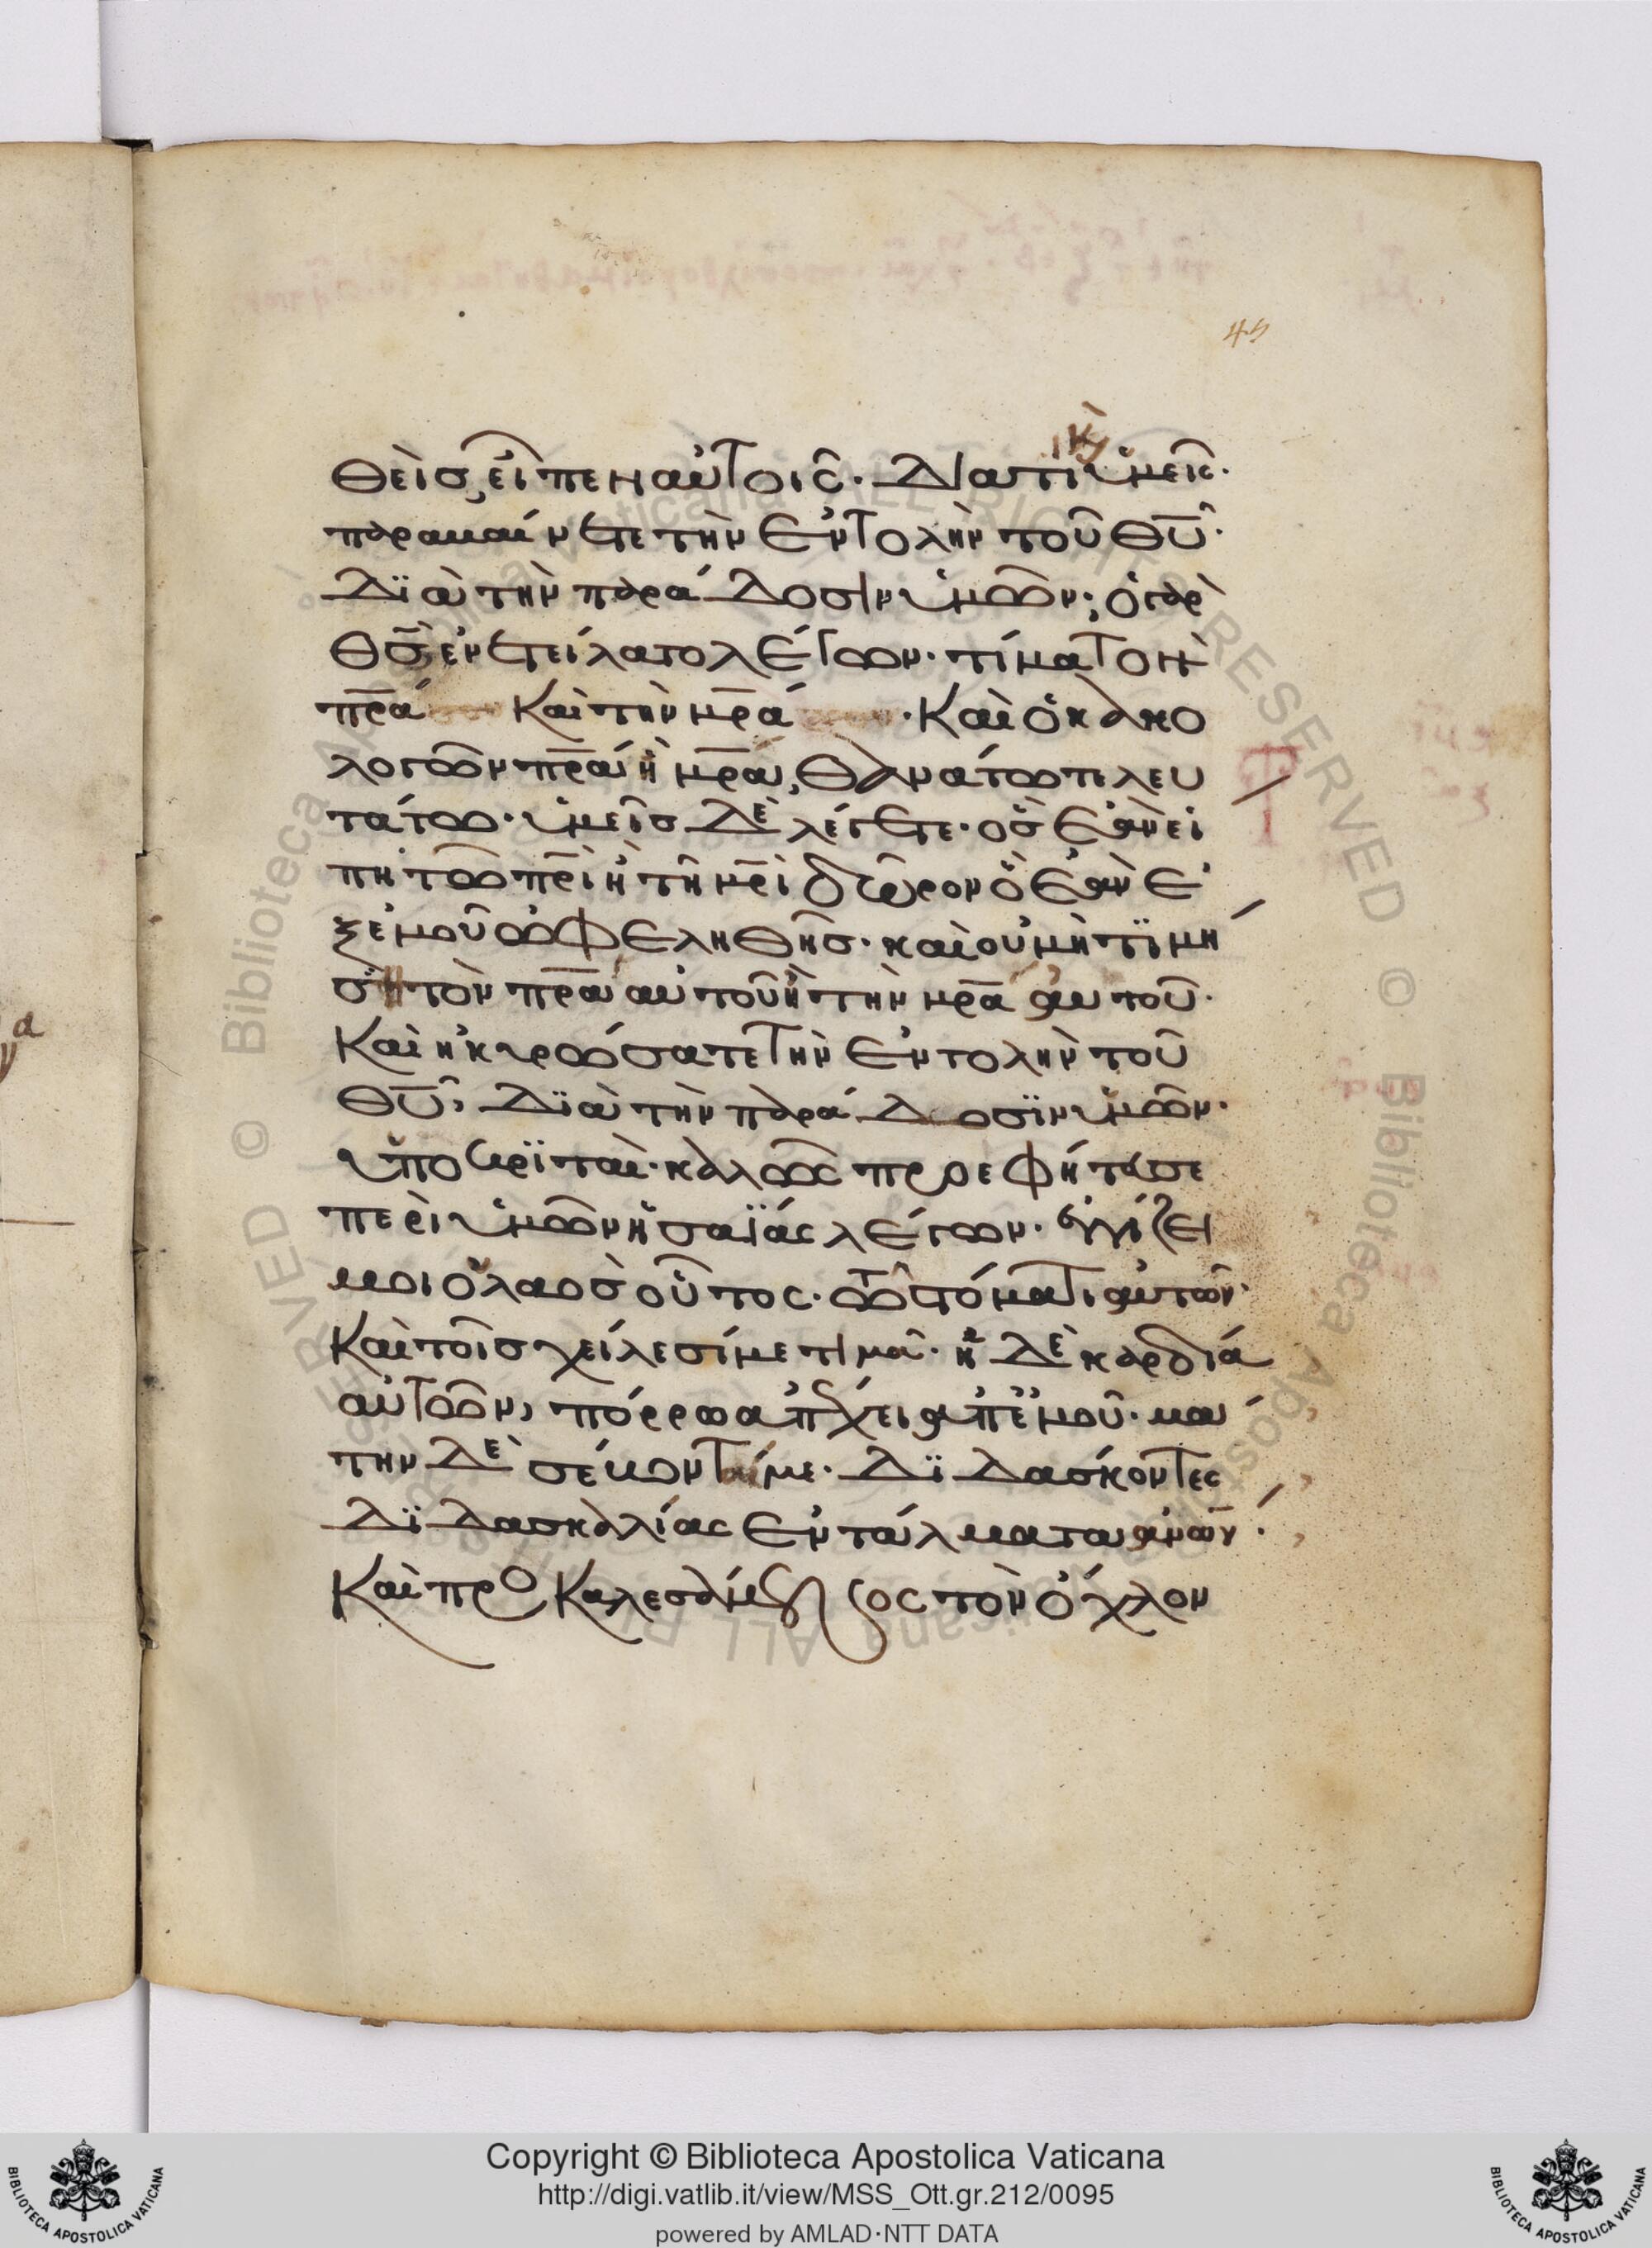 45
κ(αὶ)
θεὶς, εἶπεν αὐτοῖς. διατί ὑμεῖς.
παραβαίνετε τὴν ἐντολὴν τοῦ θ̅υ̅.
διὰ τὴν παράδοσιν ὑμῶν; ὁ γὰρ
θ̅ς̅ ἐνετείλατο λέγων. τίμα τὸν
π̅ρ̅α καὶ τὴν μ̅ρ̅α. καὶ ὁ κακο
λογῶν π̅ρ̅α ἢ μ̅ρ̅α, θανάτω τελευ
τάτω. ὑμεῖς δὲ λέγετε. ὃς ἐὰν εἴ
πη τῶ π̅ρ̅ι ἢ τῆ μ̅ρ̅ι δῶρον ὃ ἐὰν ἐ
ξ ἐμοῦ ὠφεληθῆς. καὶ οὐ μὴ τιμή
ση τὸν π̅ρ̅α αὐτοῦ ἢ τὴν μ̅ρ̅α αὐτοῦ.
Καὶ ἠκυρώσατε τὴν ἐντολὴν τοῦ
θ̅υ̅, διὰ τὴν παράδοσϊν ὑμῶν.
ὑποκριταὶ. καλῶς προεφήτευσε
περὶ ὑμῶν ἡσαΐας λέγων. ἐγγίζει
μοι ὁ λαὸς οὗτος. τῶ στόματι αὐτῶν.
Καὶ τοῖς χείλεσί με τιμᾶ. ἡ δὲ καρδία
αὐτῶν, πόρρω ἀπέχει ἀπ' ἐμοῦ. μά
την δὲ σέβονταί με. διδάσκοντες
διδασκαλίας ἐντάλματα ἀν̅ω̅ν.
Καὶ προσκαλεσάμενος τὸν ὄχλον
© Biblioteca Apostolica Vaticana ALL RIGHTS RESERVED
© Biblioteca Apostolica Vaticana ALL RIGHTS RESERVED
Copyright © Biblioteca Apostolica Vaticana
http://digi.vatlib.it/view/MSS_Ott.gr.212/0095
powered by AMLAD·NTT DATA
BIBLIOTECA APOSTOLICA VATICANA
BIBLIOTECA APOSTOLICA VATICANA